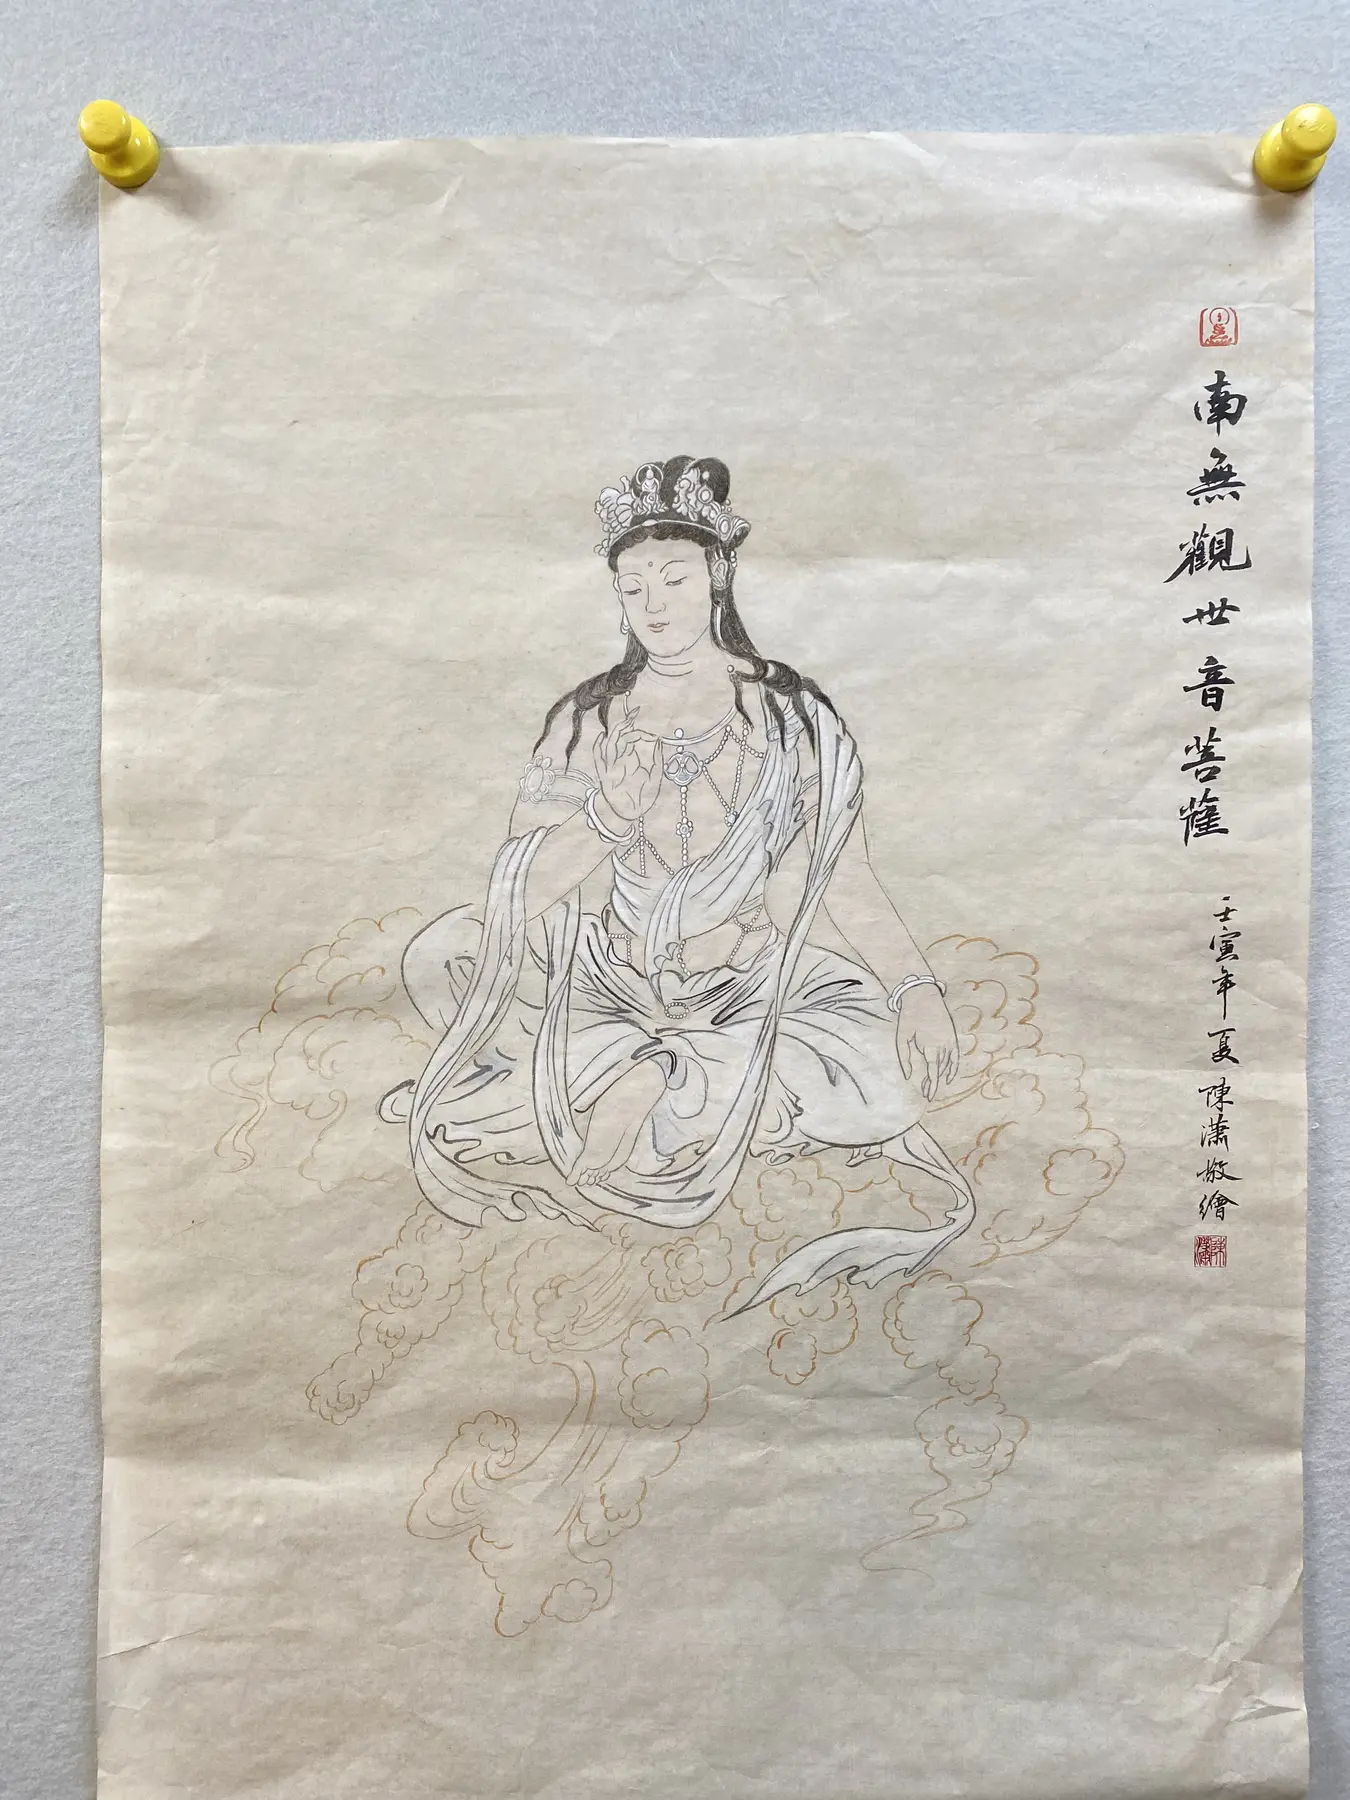 南無觀世音菩薩
壬寅年夏陳瀟敬繪
陳瀟